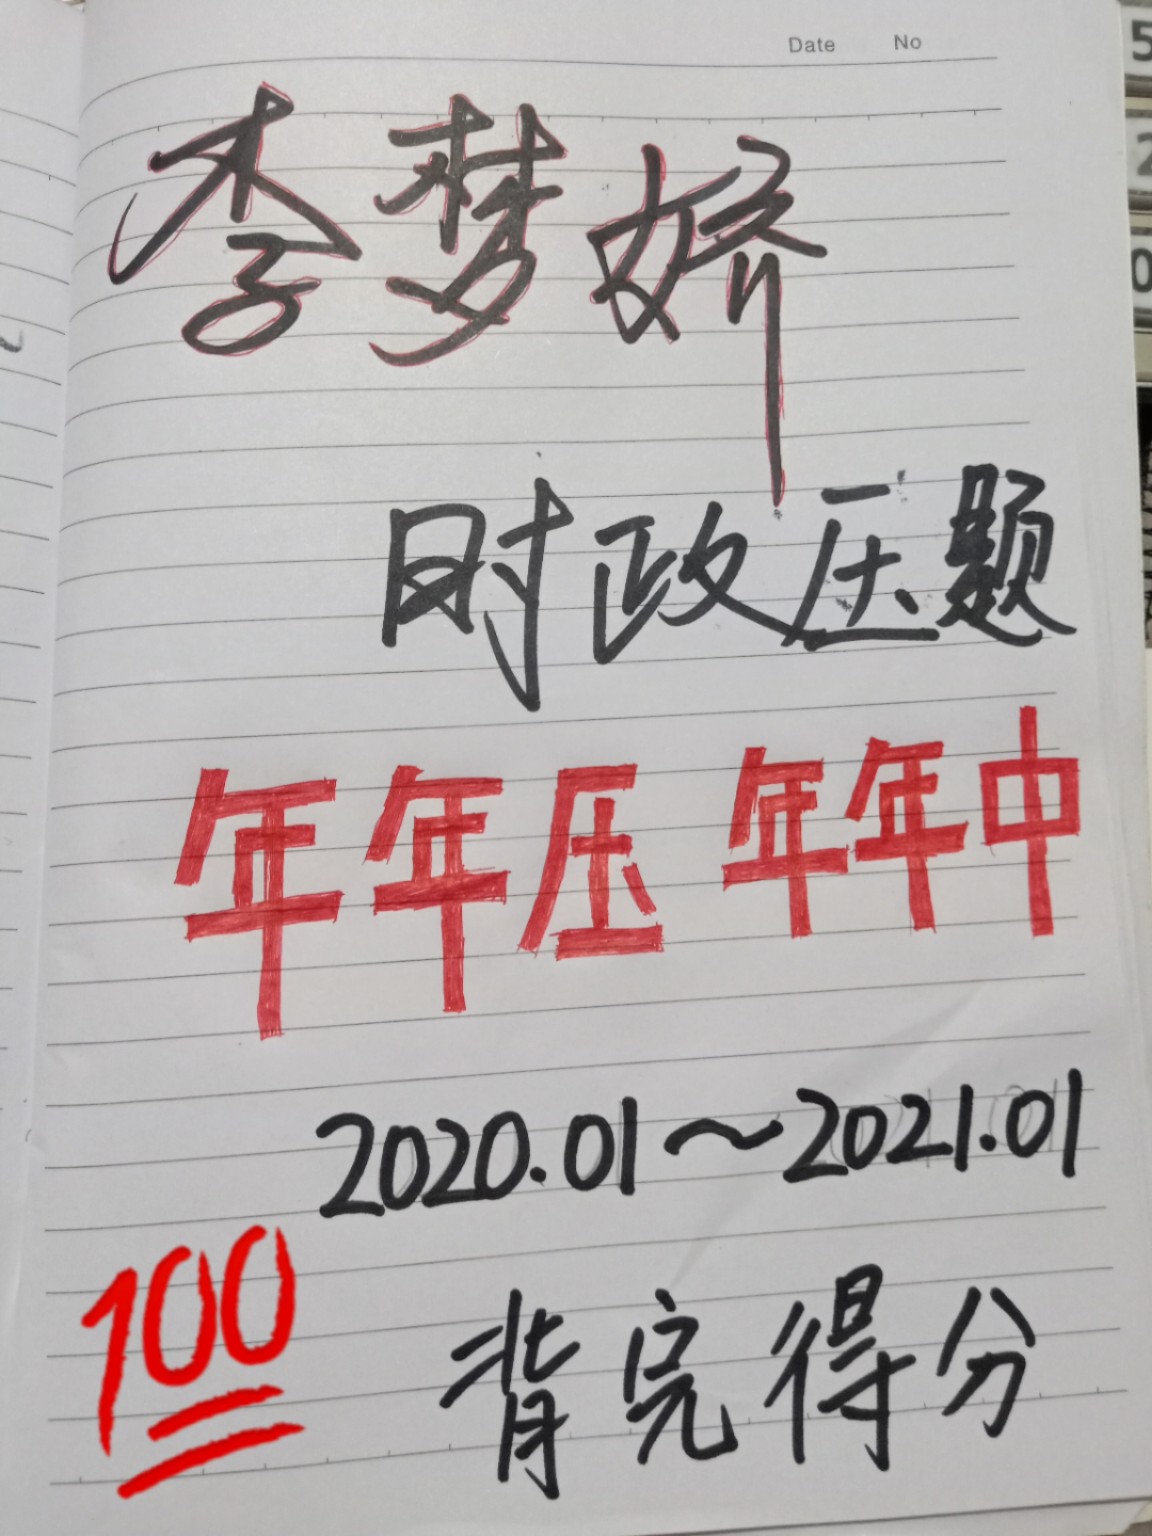 Date No
李梦娇
时政压题
年年压 年年中
2020.01~2021.01
100
背完得分
5
2
0